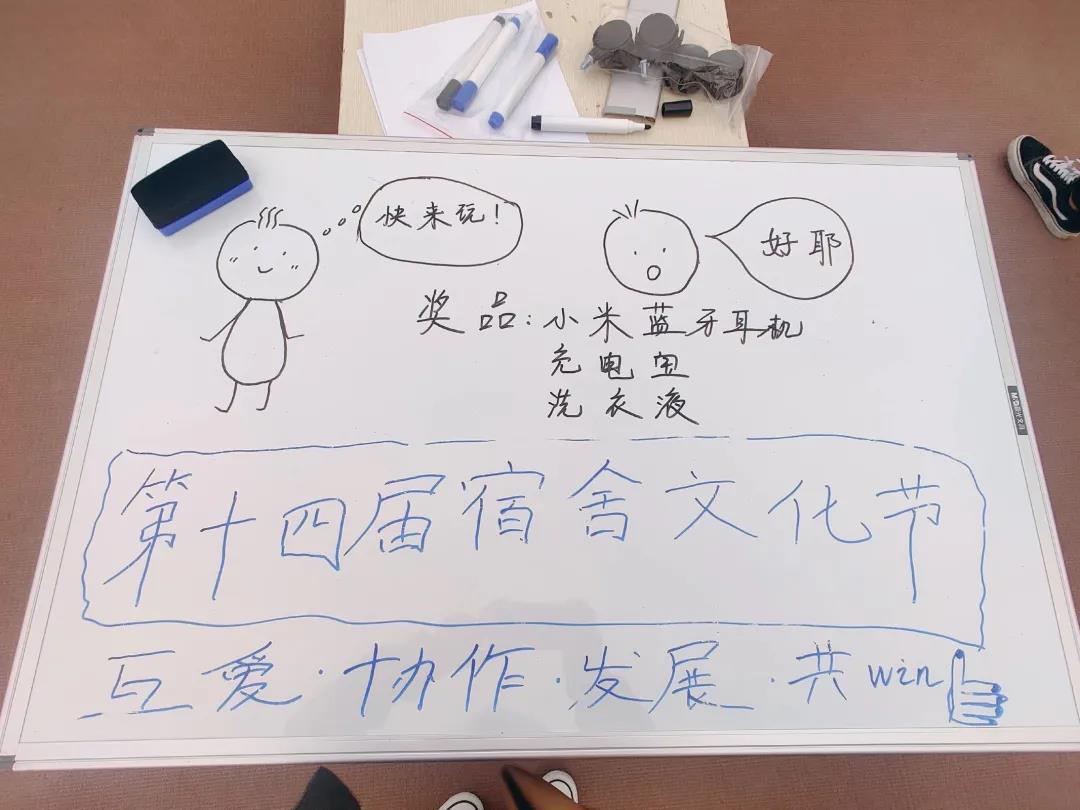 快来玩！
好耶
奖品：小米蓝牙耳机
充电宝
洗衣液
第十四届宿舍文化节
互爱·协作·发展·共win